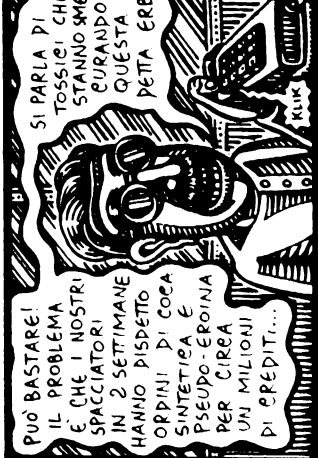 PUÒ BASTARE!
IL PROBLEMA
È CHE I NOSTRI
SPACCIATORI
IN 2 SETTIMANE
HANNO DISDETTO
ORDINI DI COCA
SINTETICA E
PSEUDO-EROINA
PER CIRCA
UN MILIONI
DI CREDITI...
SI PARLA DI
TOSSICI CH
STANNO SME
CURANDO
QUESTA
DETTA ERB
KLIK